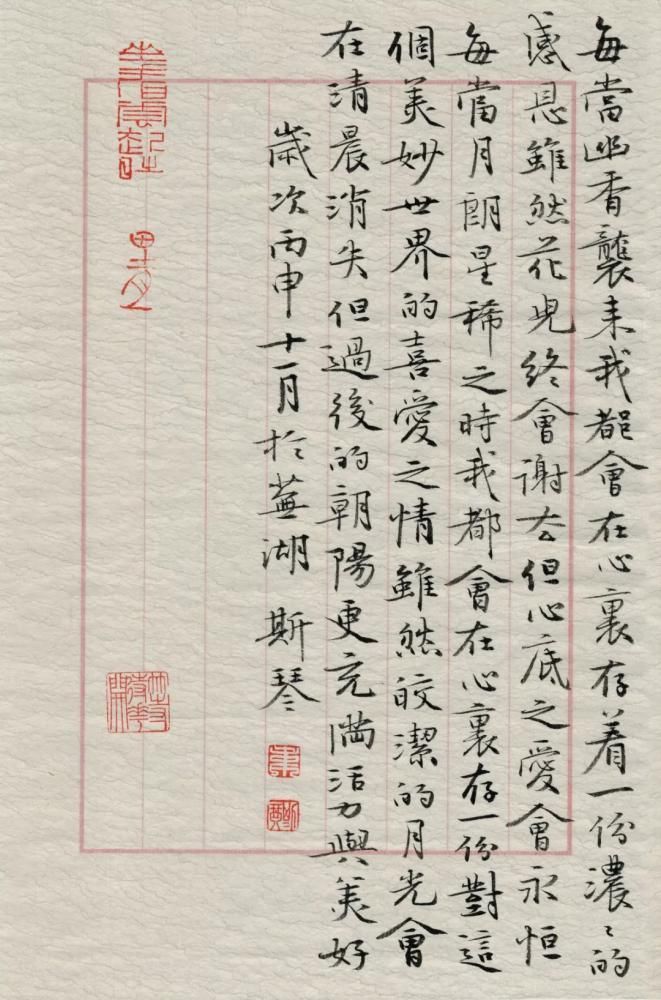 每當幽香襲来我都會在心裏存着一份濃〻的
感恩雖然花児終會謝去但心底之愛會永恒
每當月朗星稀之時我都會在心裏存一份對這
個美妙世界的喜愛之情雖然皎潔的月光會
在清晨消失但過後的朝陽更充満活力與美好
歲次丙申十一月於蕪湖 斯琴